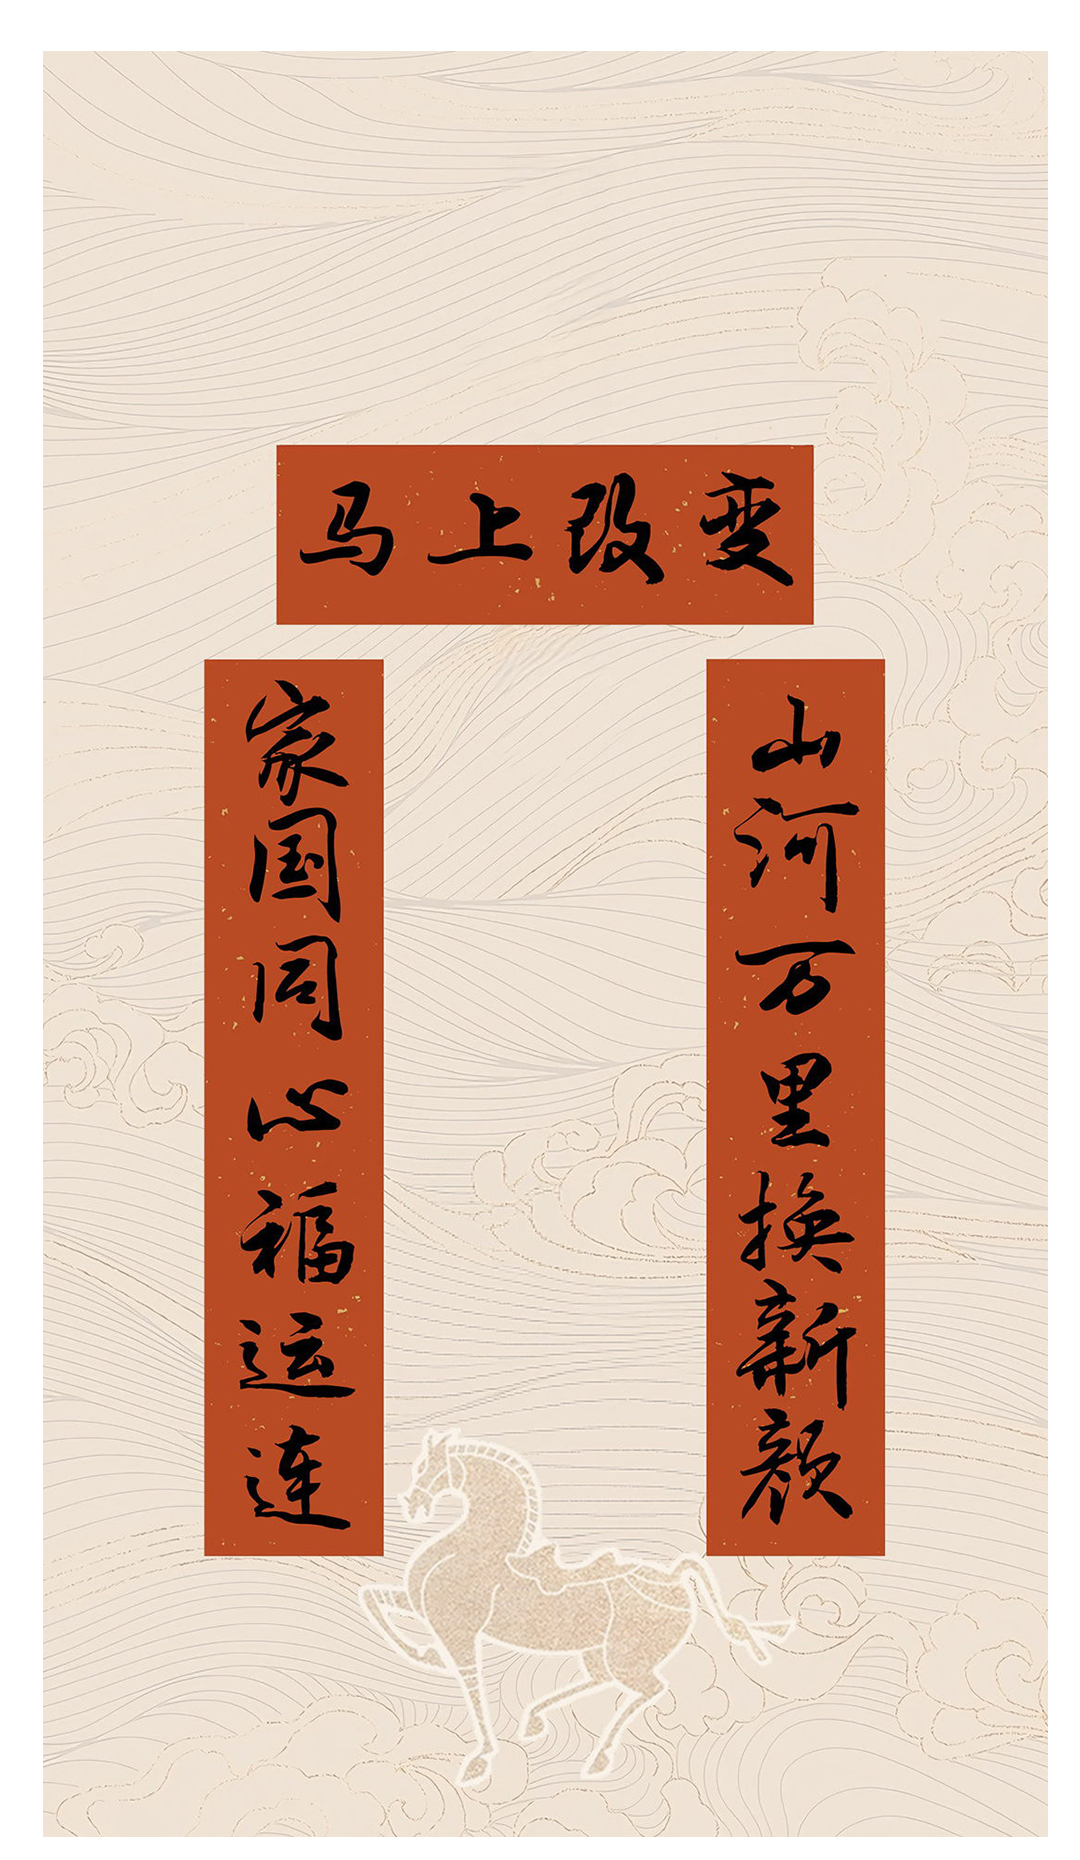 马上改变
山河万里换新颜
家国同心福运连